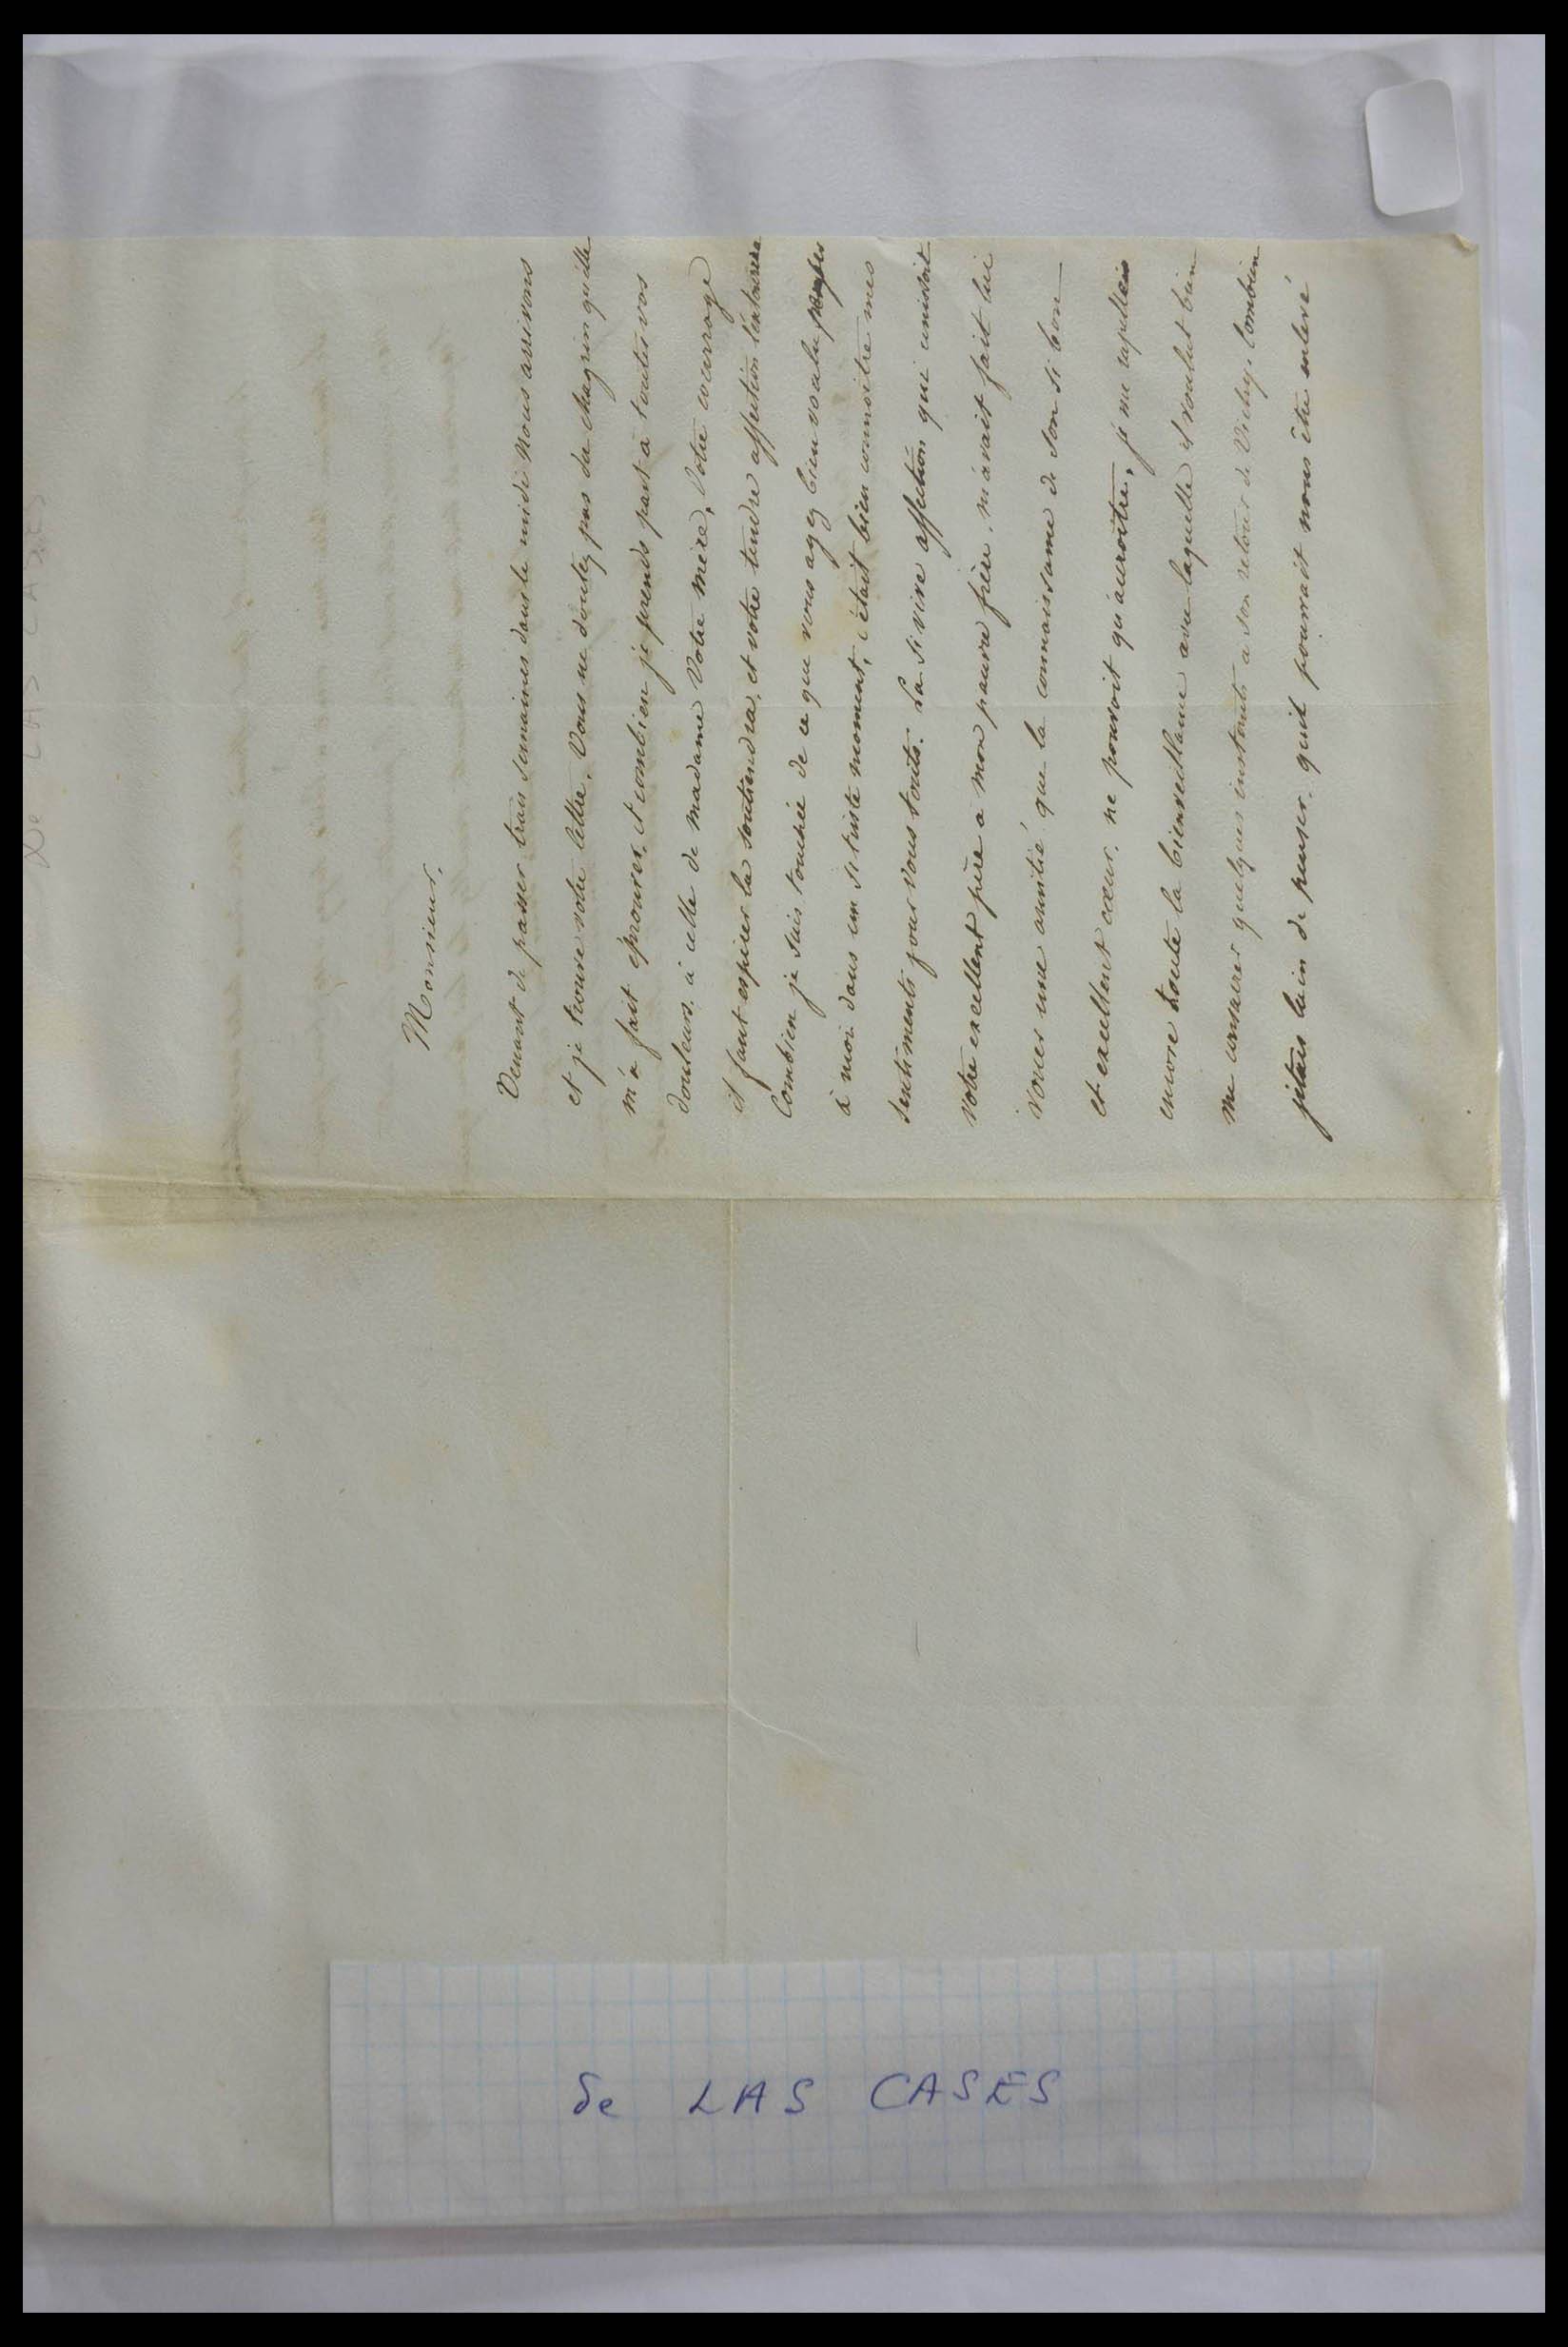 Monsieur,
Venant de passer trois semaines dans le midi nous arrivons
et je trouve votre lettre. Vous ne doutez pas du chagrin qu'elle
m'a fait éprouver, et combien je prends part à toutes vos
douleurs. à celle de madame Votre mère, Votre courage
il faut espérer la soutiendra, et votre tendre affection l'entourera
Combien je suis touchée de ce que vous ayez bien voulu
à moi dans un si triste moment, c'était bien connoitre mes
sentiments pour vous touts. La si vive affection qui unissoit
votre excellent père a mon pauvre frère, m'avait fait lui
vouer une amitié que la connaissance de son si bon
et excellent cœur, ne pouvoit qu'accroitre, je me rapellais
encore toute la bienveillance avec laquelle il voulut bien
me consacrer quelques instants a son retour de Vichy. Combien
j'étais loin de penser, qu'il pourrait nous être enlevé
de LAS CASES
de LAS CASES